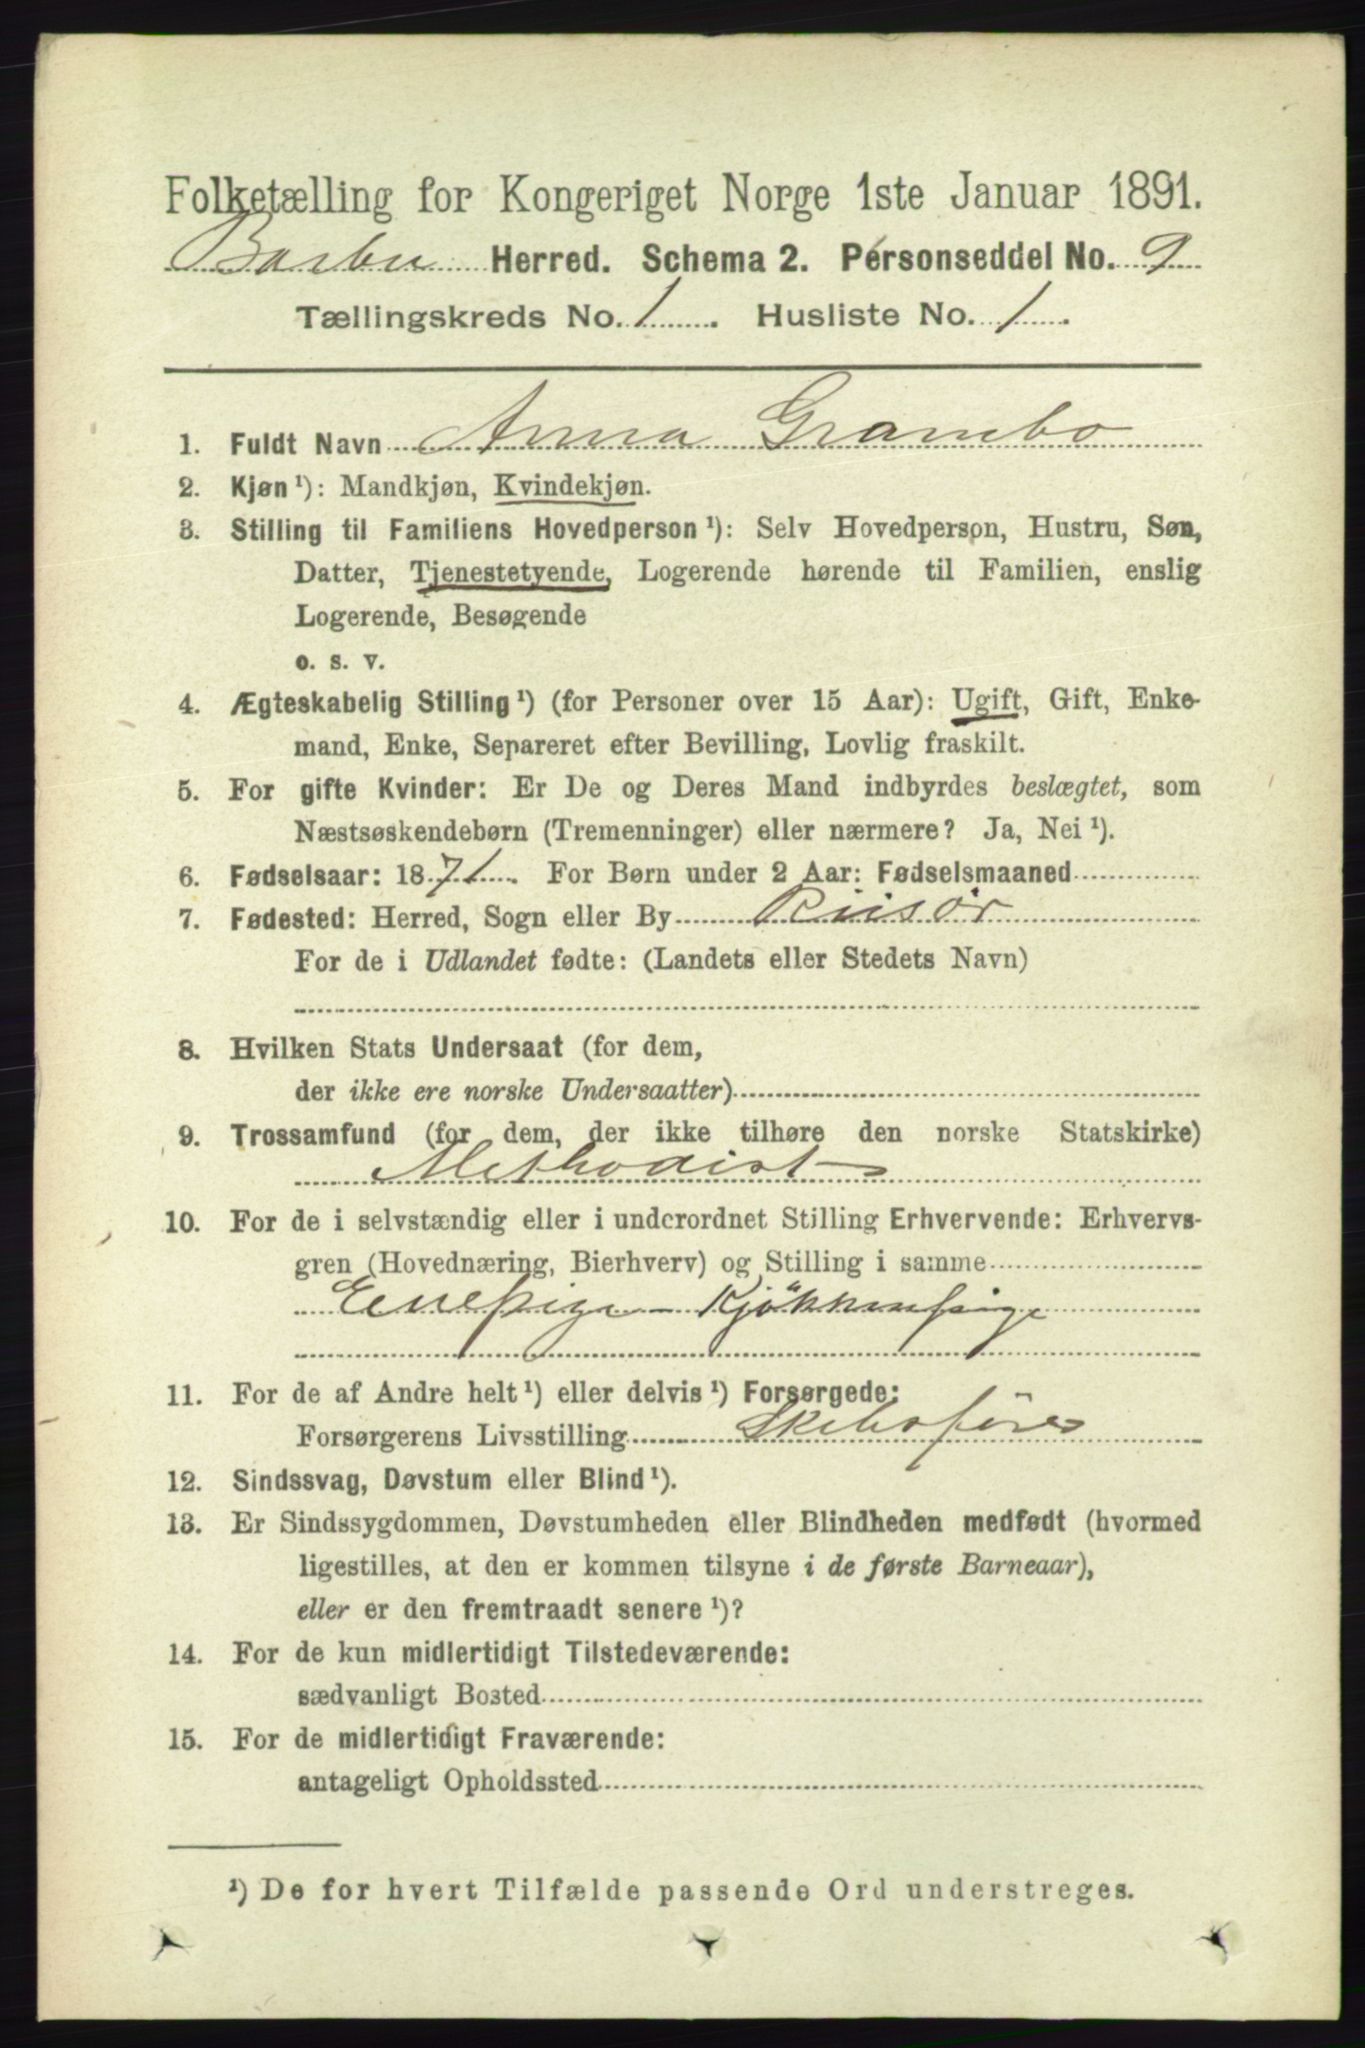 Folketælling for Kongeriget Norge 1ste Januar 1891.
Barbu Herred. Schema 2. Personseddel No. 9
Tællingskreds No. 1. Husliste No. 1.
1. Fuldt Navn Anna Grambo
2. Kjøn ¹): Mandkjøn, Kvindekjøn.
3. Stilling til Familiens Hovedperson ¹): Selv Hovedperson, Hustru, Søn,
Datter, Tjenestetyende, Logerende hørende til Familien, enslig
Logerende, Besøgende
o. s. v.
4. Ægteskabelig Stilling ¹) (for Personer over 15 Aar): Ugift, Gift, Enke-
mand, Enke, Separeret efter Bevilling, Lovlig fraskilt.
5. For gifte Kvinder: Er De og Deres Mand indbyrdes beslægtet, som
Næstsøskendebørn (Tremenninger) eller nærmere? Ja, Nei ¹).
6. Fødselsaar: 1871. For Børn under 2 Aar: Fødselsmaaned
7. Fødested: Herred, Sogn eller By Riisør
For de i Udlandet fødte: (Landets eller Stedets Navn)
8. Hvilken Stats Undersaat (for dem,
der ikke ere norske Undersaatter)
9. Trossamfund (for dem, der ikke tilhøre den norske Statskirke)
Methodist
10. For de i selvstændig eller i underordnet Stilling Erhvervende: Erhvervs-
gren (Hovednæring, Bierhverv) og Stilling i samme
Enepige - Kjökkenpige
11. For de af Andre helt ¹) eller delvis ¹) Forsørgede:
Forsørgerens Livsstilling Skibsförer
12. Sindssvag, Døvstum eller Blind ¹).
13. Er Sindssygdommen, Døvstumheden eller Blindheden medfødt (hvormed
ligestilles, at den er kommen tilsyne i de første Barneaar),
eller er den fremtraadt senere ¹)?
14. For de kun midlertidigt Tilstedeværende:
sædvanligt Bosted
15. For de midlertidigt Fraværende:
antageligt Opholdssted
¹) De for hvert Tilfælde passende Ord understreges.